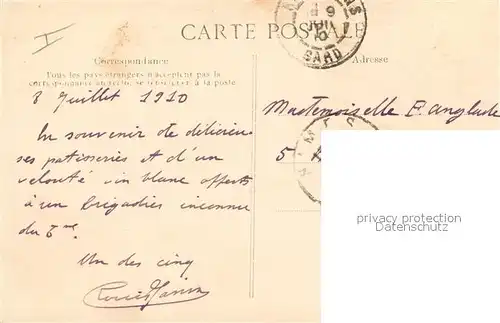 CARTE POSTALE
9
JUIL
10
GARD
Correspondance
Adresse
Tous les pays étrangers n'acceptent pas la
correspondance au recto, se renseigner à la poste
8 Juillet 1910
En souvenir de délicieu-
ses patisseries et d'un
velouté vin blanc offerts
à un brigadier inconnu
du
Un des cinq
Mademoiselle E. Anglade
5
NIMES
privacy protection
Datenschutz